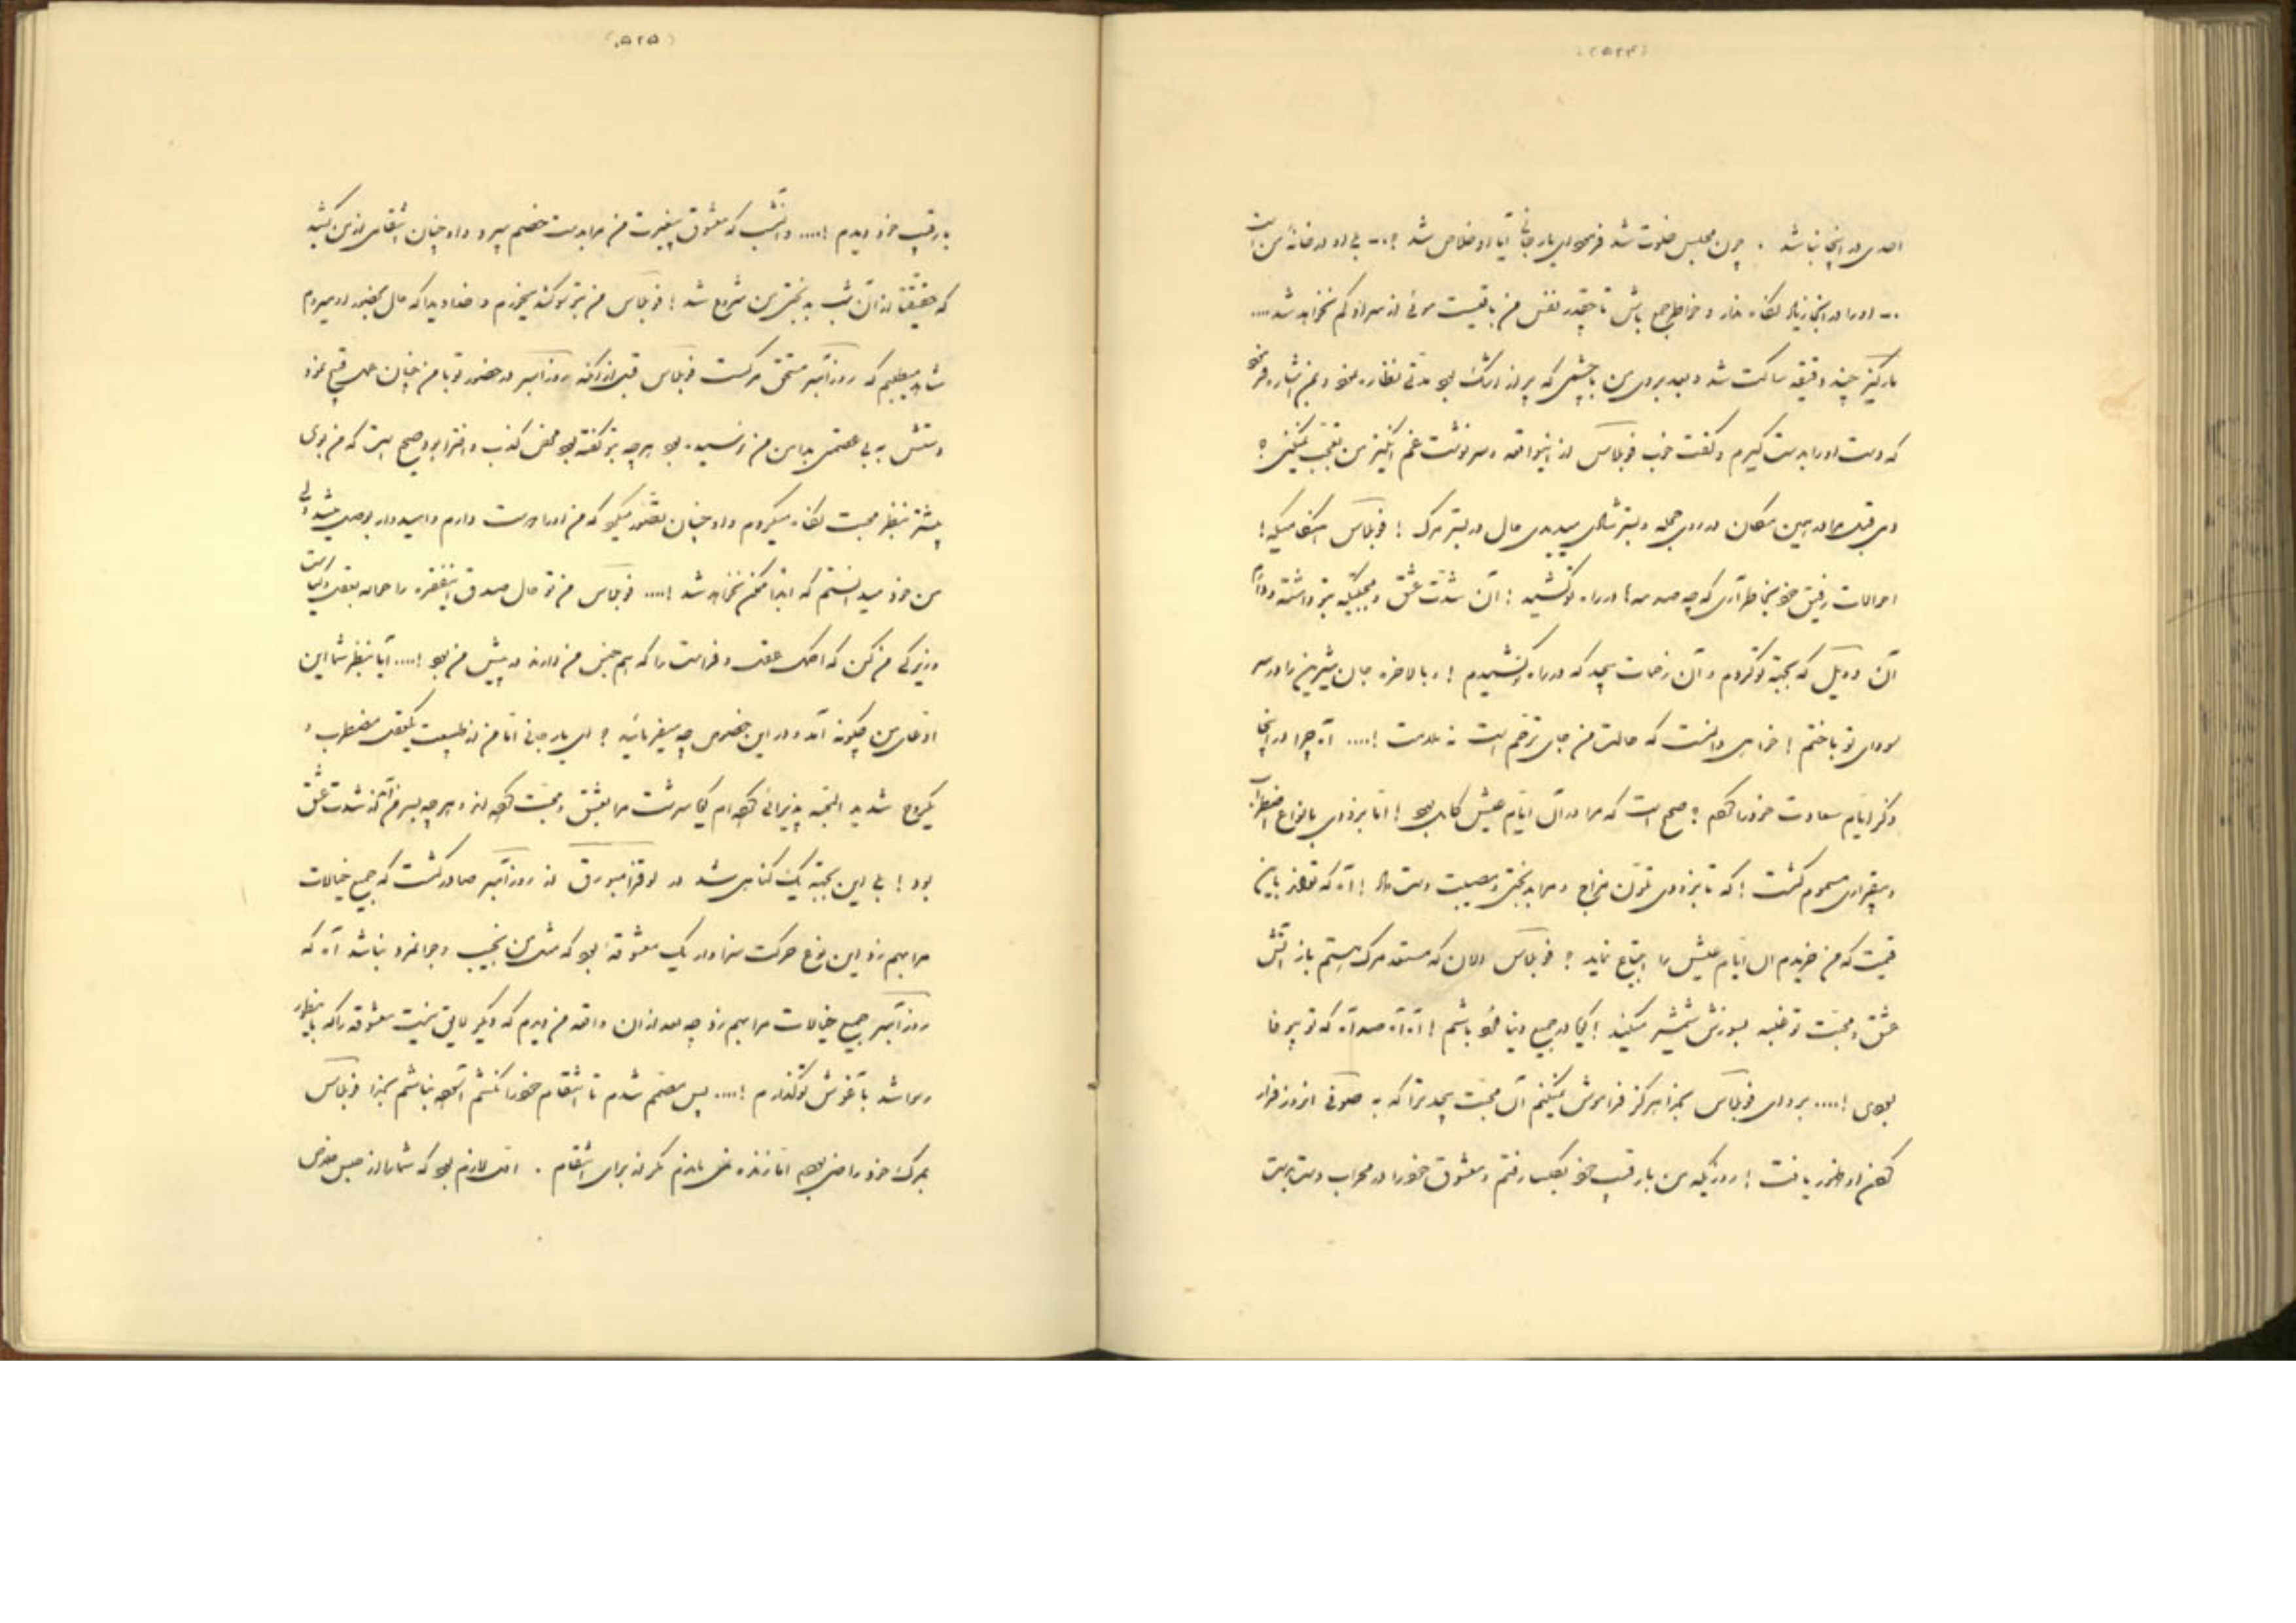 (۵۲۴)
احدی در اینجا نباشد . چون مجلس خلوت شد فرمود ای یار جانی آیا او خلاص شد ؟ ـ بلی او در خانهٔ من است
ـ او را در اینجا زیاد نگاه مدار و خواطر جمع باش تا چقدر نفس من باقیست موئی از سر او کم نخواهد شد ....
مارکیز چند دقیقه ساکت شد و بعد بروی من با چشمی که پر از اشک بود مدتی نظاره نمود و بمن اشاره فرمود
که دست او را بدست گیرم و گفت خوب فوبلاس از اینواقعه و سرنوشت غم انگیز من تعجب میکنی ؟
در همین مکان در روی بستر شادی میدیدی حال در بستر مرگ ! فوبلاس
احوالات رفیق خود بخاطر آری که چه صدمه ها در راه تو کشید ! آن شدت عشق و محبتیکه بتو داشته و دارم
آن که بجهة تو کردم و آن زحمات بیحد که در راه تو کشیدم ! و بالاخره جان شیرین را در سر
سودای تو باختم ! خواهی دانست که حالت من جای ترحم است نه ملامت ! .... آه چرا در اینجا
ذکر ایام سعادت خود را کنم ؟ صحیح است که مرا در آن ایام عیش کامل بود ! اما بزودی بانواع اضطراب
و بیقراری مسموم گشت ! که تا بزودی و مرا بدبختی و مصیبت دست داد ! آه که باین
قیمت که من خریدم آن ایام عیش را ابتیاع نماید ؟ فوبلاس الان که مستعد مرگ هستم باز آتش
عشق و محبت تو قلبم بسوزش میکند ! در جمیع دنیا باشم ! آه آه صد آه که تو بیوفا
بودی ! .... برو ای فوبلاس بخدا هرگز فراموش نمیکنم آن محبت بیحد ترا که به صوفی امروز قرار
او ظهور یافت ! روزیکه من با رقیب خود رفتم و معشوق خود را در محراب دست بدست
(۵۲۵)
با رقیب خود دیدم ! .... و آنشب که معشوق بیغیرت من مرا بدست خصم سپرد و او چنان انتقامی از من کشید
که حقیقتاً از آن شب بدبختی من شروع شد ! فوبلاس من بتو سوگند میخورم و خداوندا که حال بحضور او میروم
شاهد میطلبم که روزآمبر مستحق مرگست فوبلاس قبل از آنکه روزآمبر در حضور تو با من چنان عمل قبیح نمود
دستش به بی عصمتی بدامن من نرسیده بود هرچه بتو گفته بود محض کذب و افترا بود صحیح است که من بوی
بیشتر بنظر محبت نگاه میکردم و او چنان تصور میکرد که من او را دوست دارم و امیدوار بوصل میشد ولی
من خود میدانستم که ابداً ممکن نخواهد شد ! .... فوبلاس من تو حال صدق اینفقره را حواله بعقل و کیاست
و زیرکی من کن که اندک عقل و فراست را که هم جنس من دارند در پیش من بود ! .... آیا بنظر شما این
ادعای من چگونه آمد و در این خصوص چه میفرمائید ؟ ای یار جانی اما من از طبیعت یکعقل مضطرب و
یکروح شدید البتهٔ پذیرائی کرده ام گویا سرشت مرا بعشق و محبت کرده اند و هرچه بسر من آمد از شدت عشق
بود ! بلی این بجهة یک گناهی شد در لوقزامبورق از روزآمبر صادر گشت که جمیع خیالات
مرا بهم زد این نوع حرکت سزاوار یک معشوقهٔ بود که مثل من نجیب و جوانمرد نباشد آه که
روزآمبر جمیع خیالات مرا بهم زد چه بعد از آن واقعه من دیدم که دیگر لایق نیست معشوقه را که باینطور
رسوا شد بآغوش تو گذارم ! .... پس مصمم شدم تا انتقام خود را نکشم آسوده نباشم بخدا فوبلاس
بمرگ خود راضی بودم اما زنده نمی ماندم مگر از برای انتقام . اول لازم بود که شما را از حبس خلاص